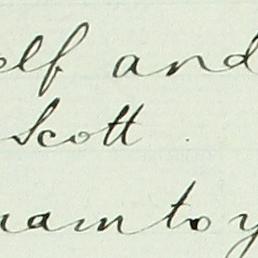 elf and
Scott.
am to y